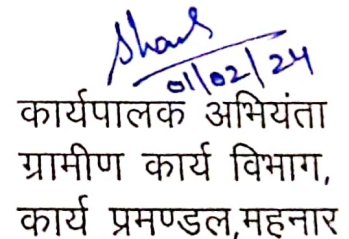 01/02/24
कार्यपालक अभियंता
ग्रामीण कार्य विभाग,
कार्य प्रमण्डल,महनार